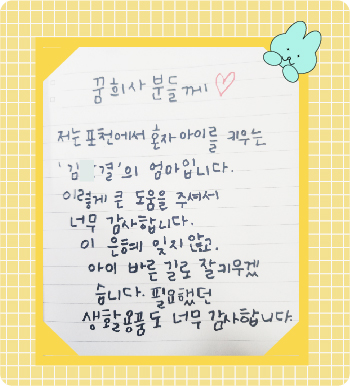 꿈회사 분들께
저는 포천에서 혼자 아이를 키우는
'김 결'의 엄마입니다.
이렇게 큰 도움을 주셔서
너무 감사합니다.
이 은혜 잊지 않고.
아이 바른 길로 잘키우겠
습니다. 필요했던
생활용품도 너무 감사합니다.